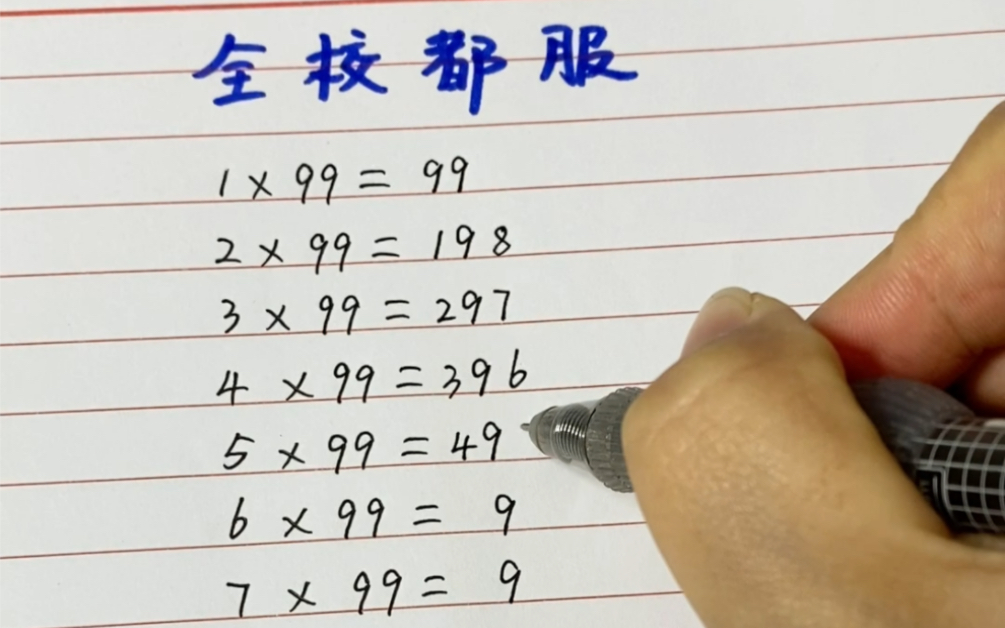 全校都服
1 × 99 = 99
2 × 99 = 198
3 × 99 = 297
4 × 99 = 396
5 × 99 = 49
6 × 99 = 9
7 × 99 = 9